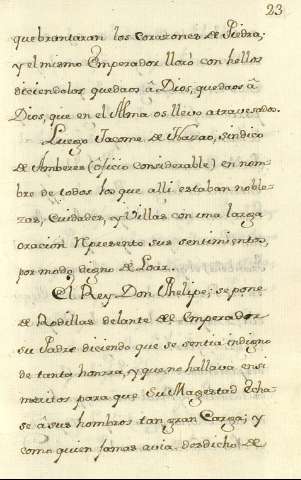 23
quebrantaran los Corazones de Piedra;
y el mismo Emperador lloró con hellos
diciendolos quedaos â Dios, quedaos â
Dios, que en el Alma os llevo atravesados.
Luego Jacome de sindico
de Amberes (oficio considerable) en nom-
bre de todos los que alli estaban noble-
zas, Ciudades, y Villas con una larga
oracion Represento sus sentimientos,
por modo digno de Loar.
El Rey Don Phelipe; se pone
de Rodillas delante del Emperador
su Padre diciendo que se sentia indigno
de tanta honrra, y que no hallava en si
meritos para que Su Magestad Echa-
se â sus hombros tan gran Carga; y
como quien jamas avia desdicho de